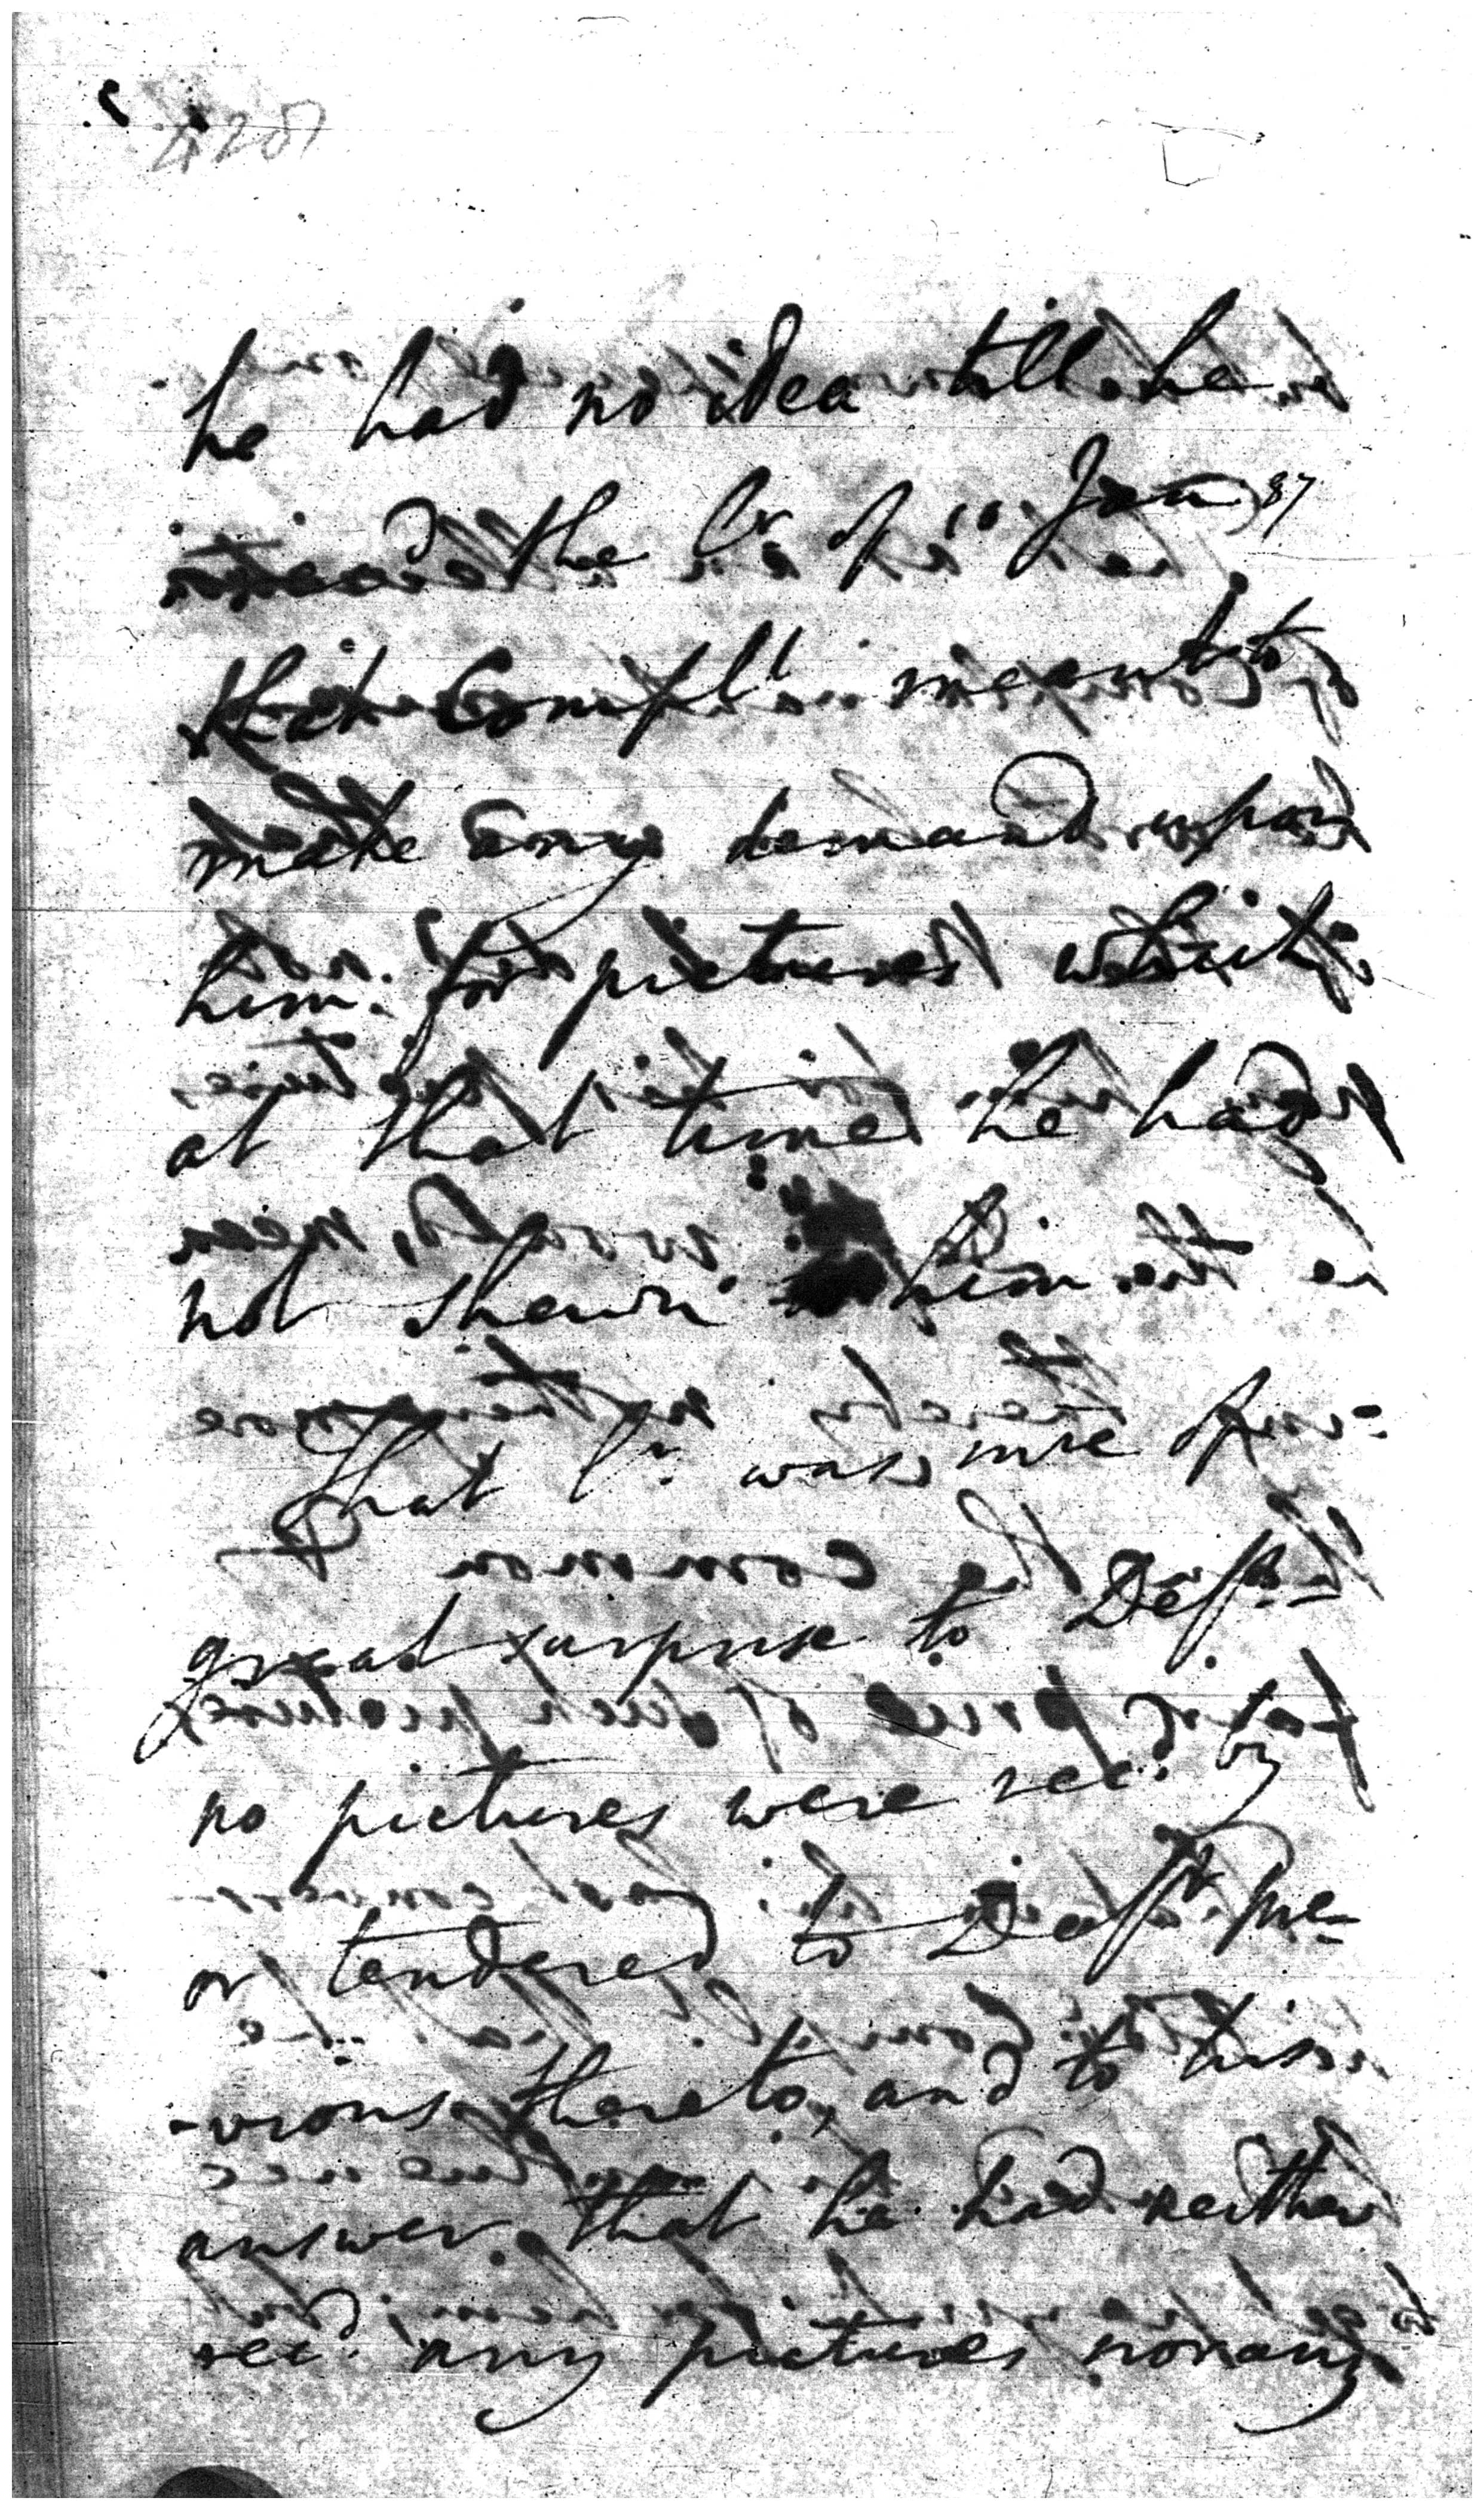 428
he had no idea till he
received the lr of 10 Jan 87
that Complt meant to
make any demand upon
him for pictures which
at that time he had
not shewn him
That lr was me of
great surprise to Deft
no pictures were recd by
or tendered to Deft pre-
-vious thereto, and to his
answer that he had neither
recd any pictures nor any